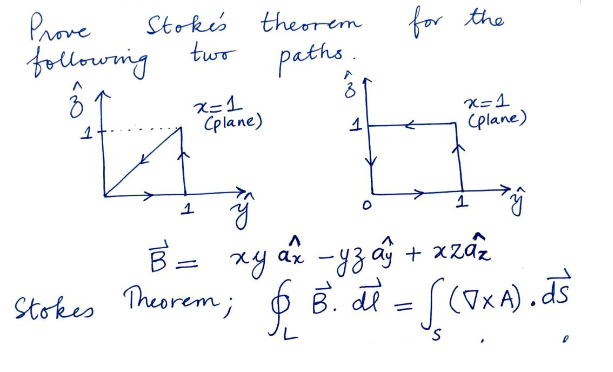 Prove Stoke's theorem for the
following two paths.
ẑ
1
x=1
(plane)
1
ŷ
ẑ
1
x=1
(plane)
0
1
ŷ
B⃗ = xy âx − yz ây + xz âz
Stokes Theorem; ∮_L B⃗ . dl⃗ = ∫_S (∇×A) . dS⃗